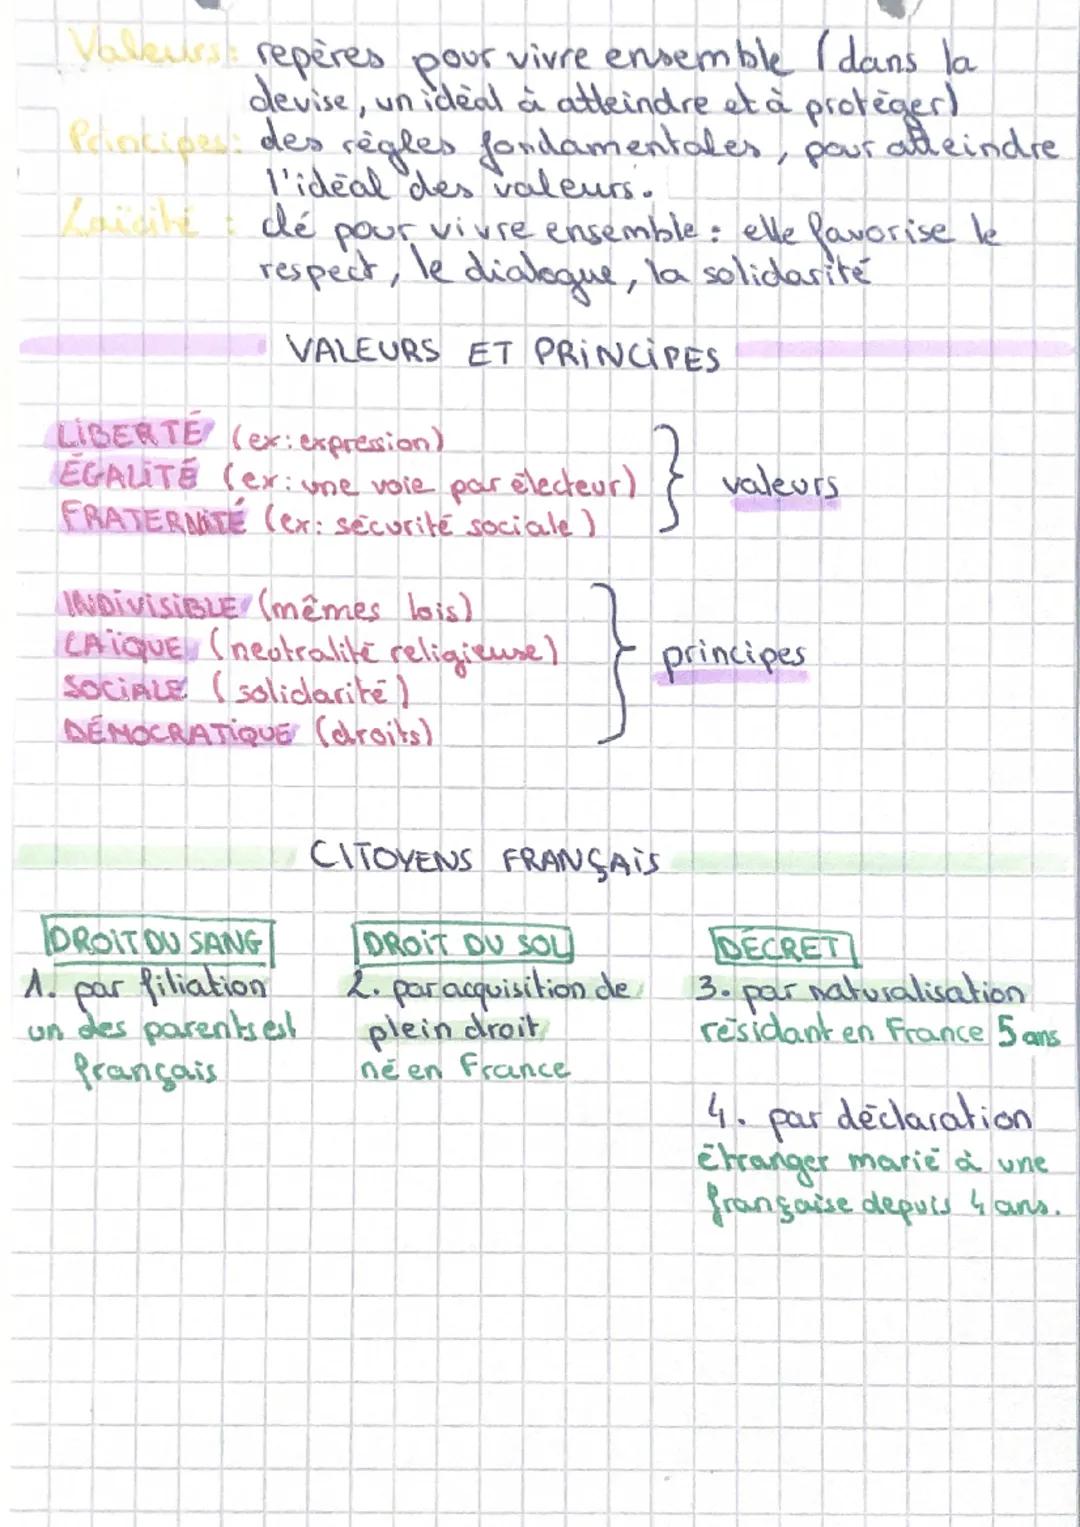 Valeurs : repères pour vivre ensemble (dans la
devise, un idéal à atteindre et à protéger)
Principes : des règles fondamentales, pour atteindre
l'idéal des valeurs.
Laïcité : clé pour vivre ensemble : elle favorise le
respect, le dialogue, la solidarité
VALEURS ET PRINCIPES
LIBERTÉ (ex: expression)
ÉGALITÉ (ex: une voie par électeur)
valeurs
FRATERNITÉ (ex: sécurité sociale)
INDIVISIBLE (mêmes lois)
LAÏQUE (neutralité religieuse)
principes
SOCIALE (solidarité)
DÉMOCRATIQUE (droits)
CITOYENS FRANÇAIS
DROIT DU SANG
1. par filiation
un des parents est
français
DROIT DU SOL
2. par acquisition de
plein droit
né en France
DÉCRET
3. par naturalisation
résidant en France 5 ans
4. par déclaration
étranger marié à une
française depuis 4 ans.